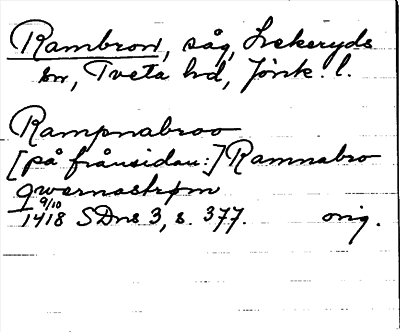 Rambron, såg, Lekeryds
sn, Tveta hd, Jönk. l.
Rampnabroo
[på frånsidan:] Ramnabro
qwernastrøm
9/10
1418 SDns 3, s. 377. orig.